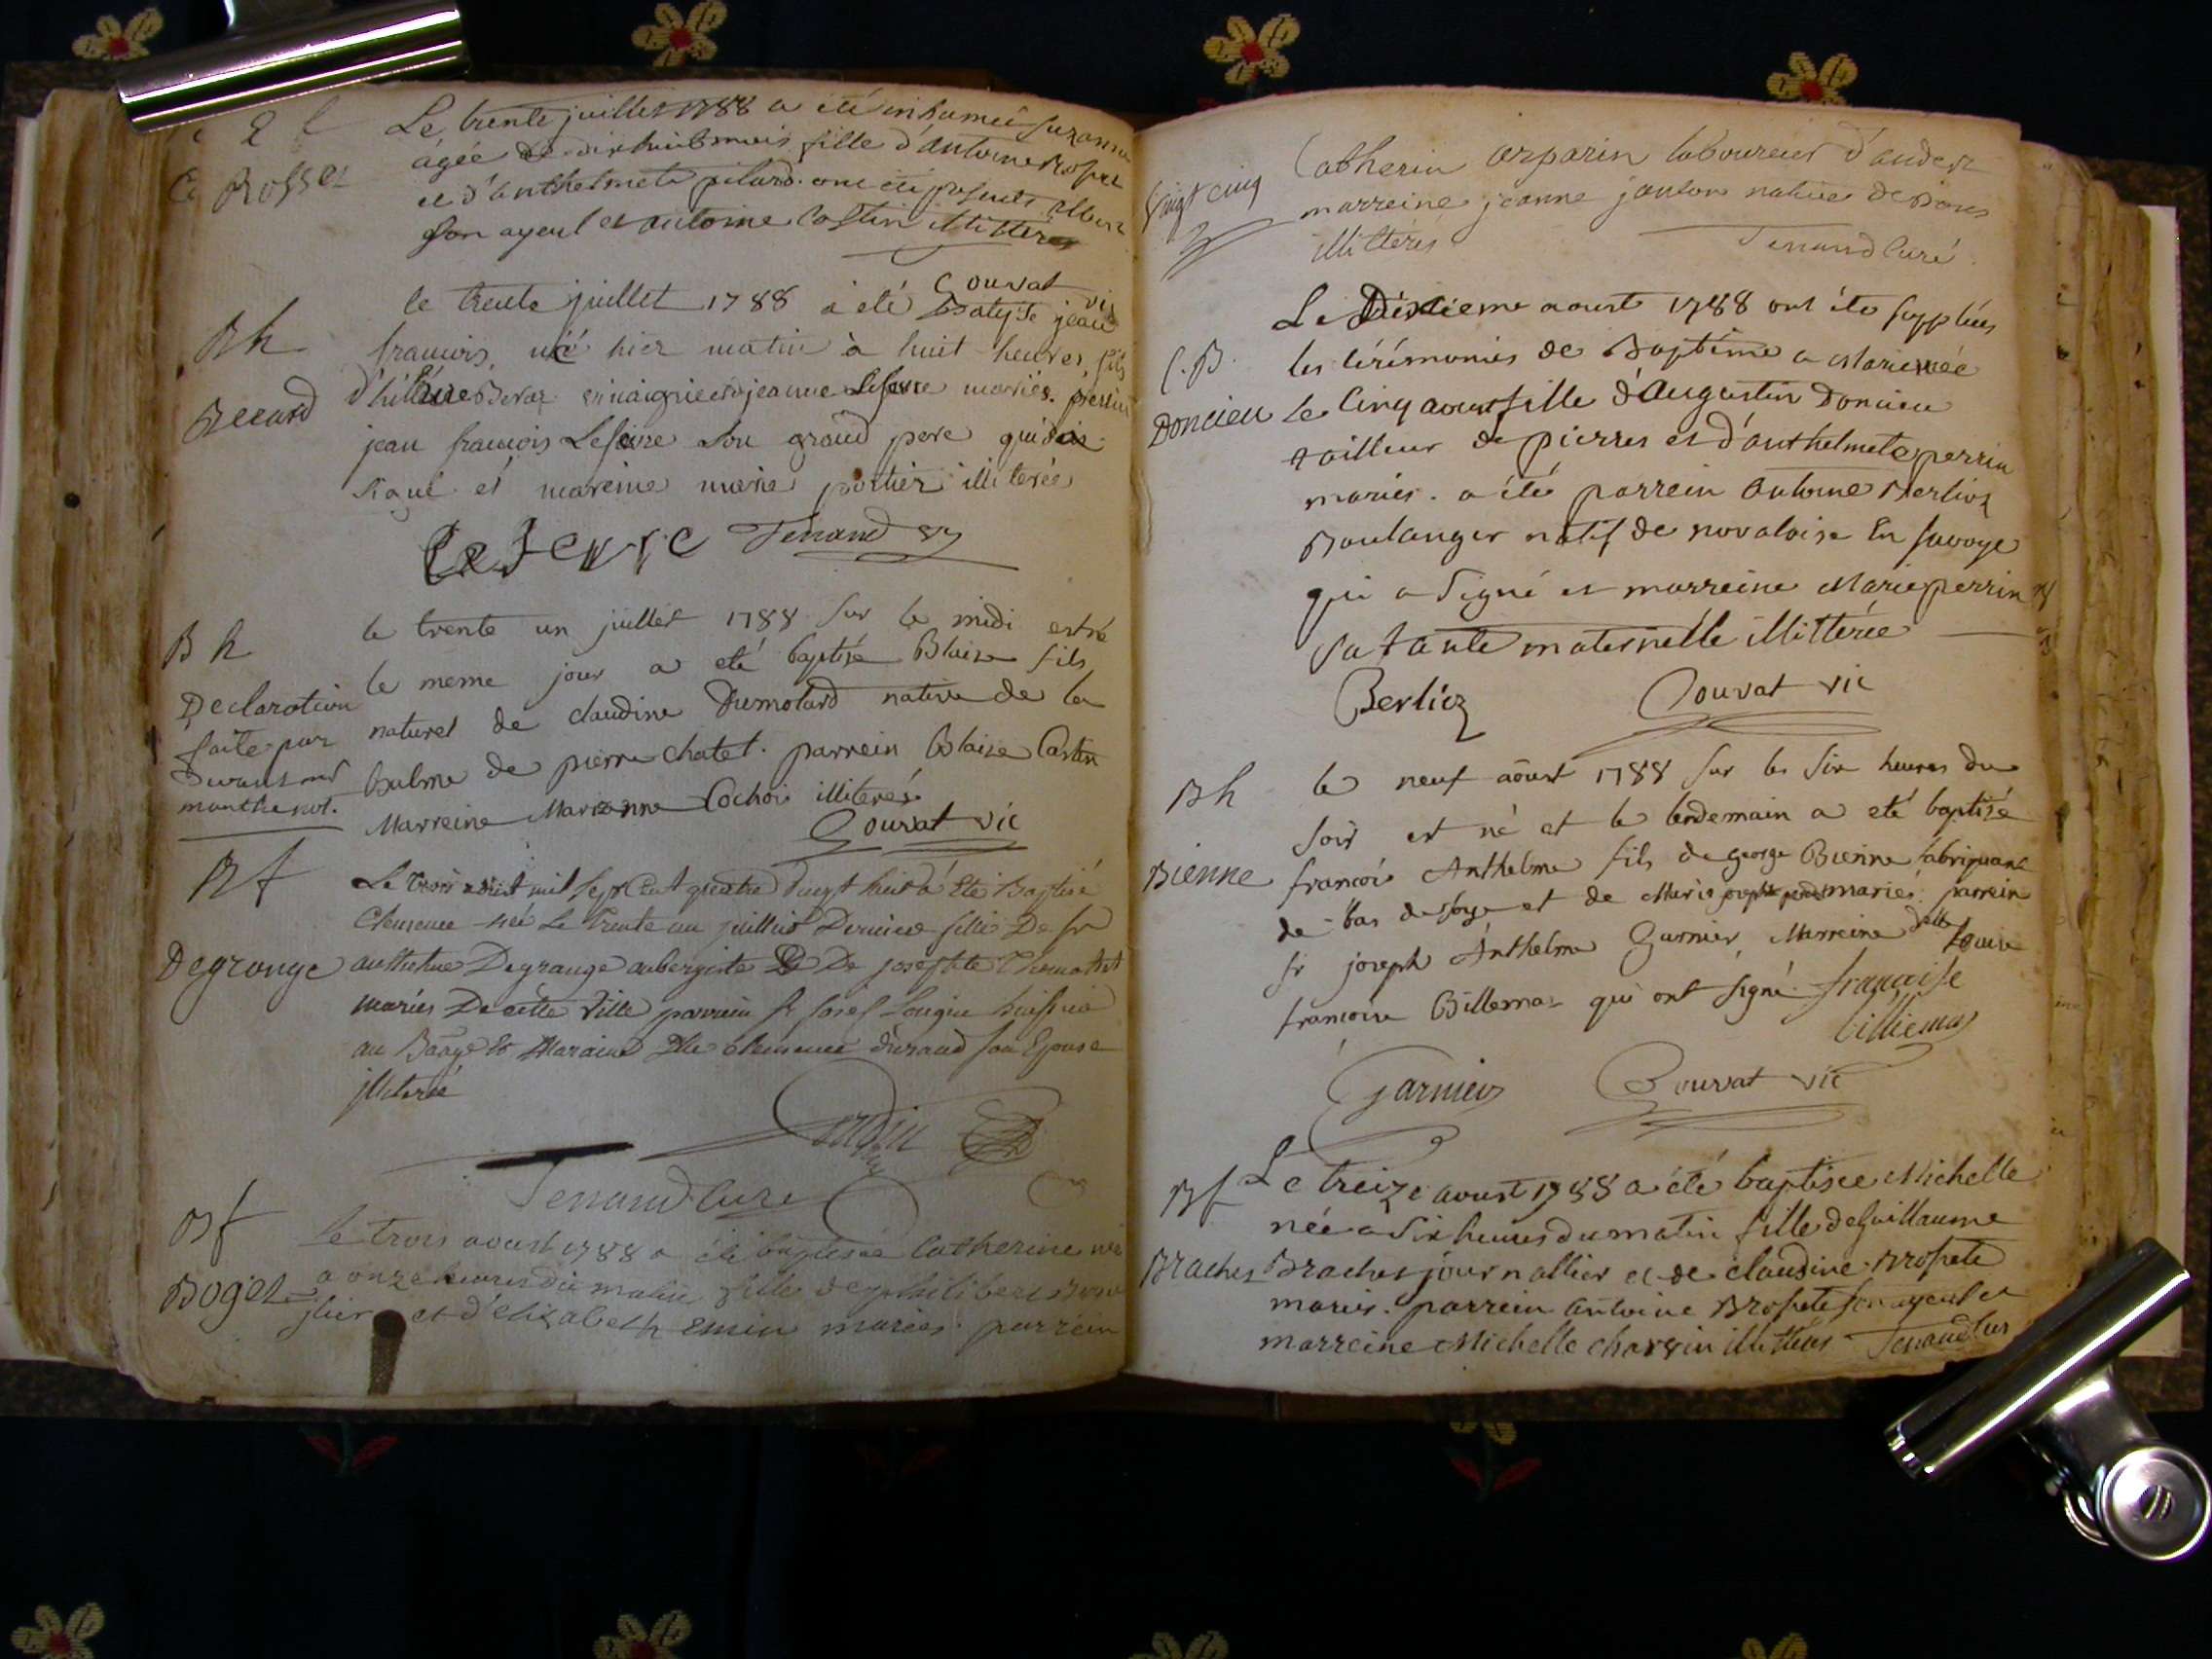 Le trente juillet 1788 a été inhumée suzanne
Rosset
âgée de dixhuit mois fille d'antoine Rosset
et d'anthelmete pilard. ont été présents
son ayeul et antoine Castin illitterés
Gouvat vic
Bh
le trente juillet 1788 a été Batisé jean
francois, né hier matin à huit heures, fils
d'hillaire et jeanne Lefevre mariés.
jean francois Lefevre son grand pere qui
signé et mareine marie portier illiterée
Lefevre Tenand
B h
le trente un juillet 1788 sur le midi est né
le meme jour a eté baptisé Blaise fils
Declaration
naturel de claudine Dumolard native de la
faite par
balme de pierre chatel. parrein Blaise Castin
Marreine Marianne Cochoi illiterés
Gouvat vic
Bf
Le trois aoust mil sept Cent quatre vingt huit a Eté Baptisé
Clemence née Le trente un juillet Dernier fille De sr
Degrange
anthelme Degrange aubergiste De josephte
mariés De cette Ville parrein sr
et Maraine Dlle clemence durand son Epouse
illiteré
Tenand Curé
Bf
Le trois aoust 1788 a été baptisée Catherine née
Boget
a onze heures du matin fille de philibert
et d'elizabeth emin mariés. parrein
vingt cinq
Catherin arparin laboureur d'andert
marreine jeanne janton native de
illitterés
Tenand Curé.
Le Dixieme aoust 1788 ont été supplées
C.B.
les cérémonies de Baptême a Marie née
Doncieu
le Cinq aoust fille d'Augustin Doncieu
tailleur de pierres et d'anthelmete perrin
mariés. a été parrein antoine Berlioz
Boulanger natif de novalaise En savoye
qui a signé et marreine Marie perrin
sa tante maternelle illitterée
Berlioz Gouvat vic
Bh
le neuf aôust 1788 sur les six heures du
soir est né et le lendemain a eté baptisé
Bienne
francois Anthelme fils de george Bienne fabriquant
de bas de soye et de Marie mariés. parrein
sr joseph Anthelme Garnier, Marreine dlle Louise
francoise Billemaz qui ont signé. francoise
billiemaz
Garnier Gouvat vic
Bf
Le treize aoust 1788 a été baptisée Michelle
née a six heures du matin fille de Guillaume
Braches
Braches journallier et de claudine Brossete
mariés. parrein antoine Brossete son ayeul et
marreine Michelle charvin illitterés Tenand Curé